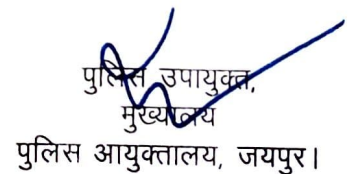 पुलिस उपायुक्त,
मुख्यालय
पुलिस आयुक्तालय, जयपुर।